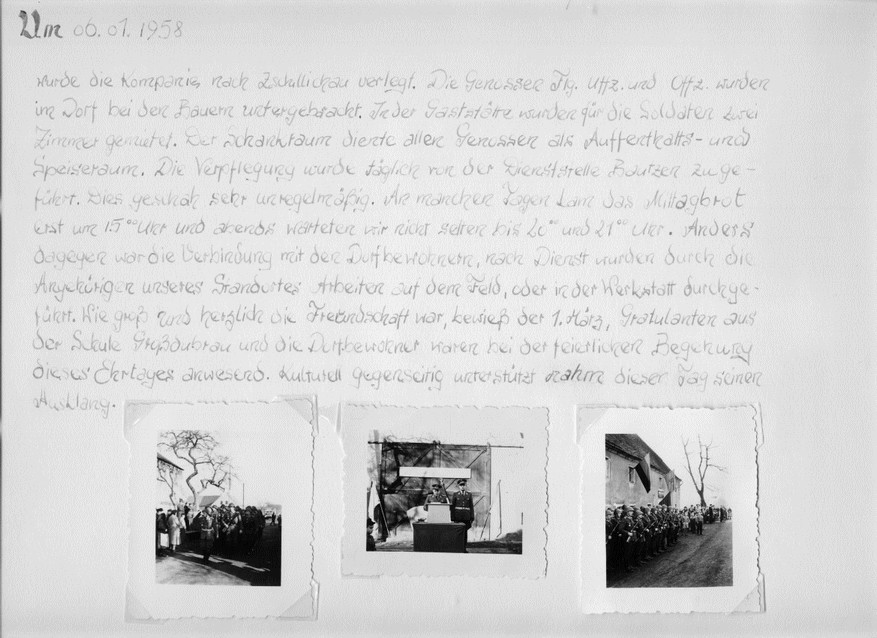 Um 06.01.1958
wurde die Kompanie nach Zschillichau verlegt. Die Genossen Flg. Uffz. und Offz. wurden
im Dorf bei den Bauern untergebracht. In der Gaststätte wurden für die Soldaten zwei
Zimmer gemietet. Der Schankraum diente allen Genossen als Auffenthalts- und
Speiseraum. Die Verpflegung wurde täglich von der Dienststelle Bautzen zuge-
führt. Dies geschah sehr unregelmäßig. An manchen Tagen kam das Mittagbrot
erst um 15⁰⁰ Uhr und abends warteten wir nicht selten bis 20⁰⁰ und 21⁰⁰ Uhr. Anders
dagegen war die Verbindung mit den Dorfbewohnern, nach Dienst wurden durch die
Angehörigen unseres Standortes Arbeiten auf dem Feld, oder in der Werkstatt durchge-
führt. Wie groß und herzlich die Freundschaft war, bewieß der 1. März, Gratulanten aus
der Schule Großdubrau und die Dorfbewohner waren bei der feierlichen Begehung
dieses Ehrtages anwesend. Kulturell gegenseitig unterstützt nahm dieser Tag seinen
Ausklang.